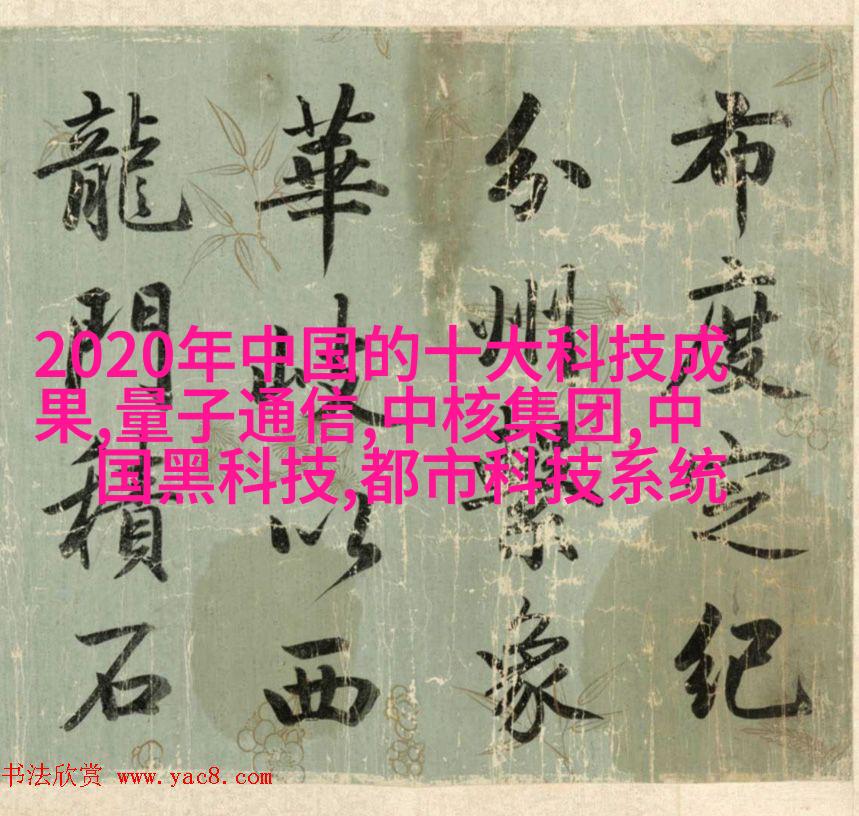 布度定紀
分州象
華岐以西
龍門積石
2020年中国的十大科技成
果,量子通信,中核集团,中
国黑科技,都市科技系统
书法欣赏 www.yac8.com